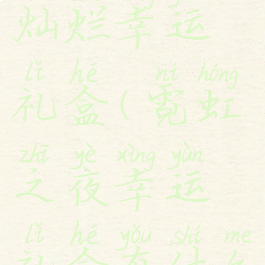 灿烂幸运
lǐ hé ní hóng
礼盒(霓虹
zhī yè xìng yùn
之夜幸运
lǐ hé yǒu shí me
礼盒有什么